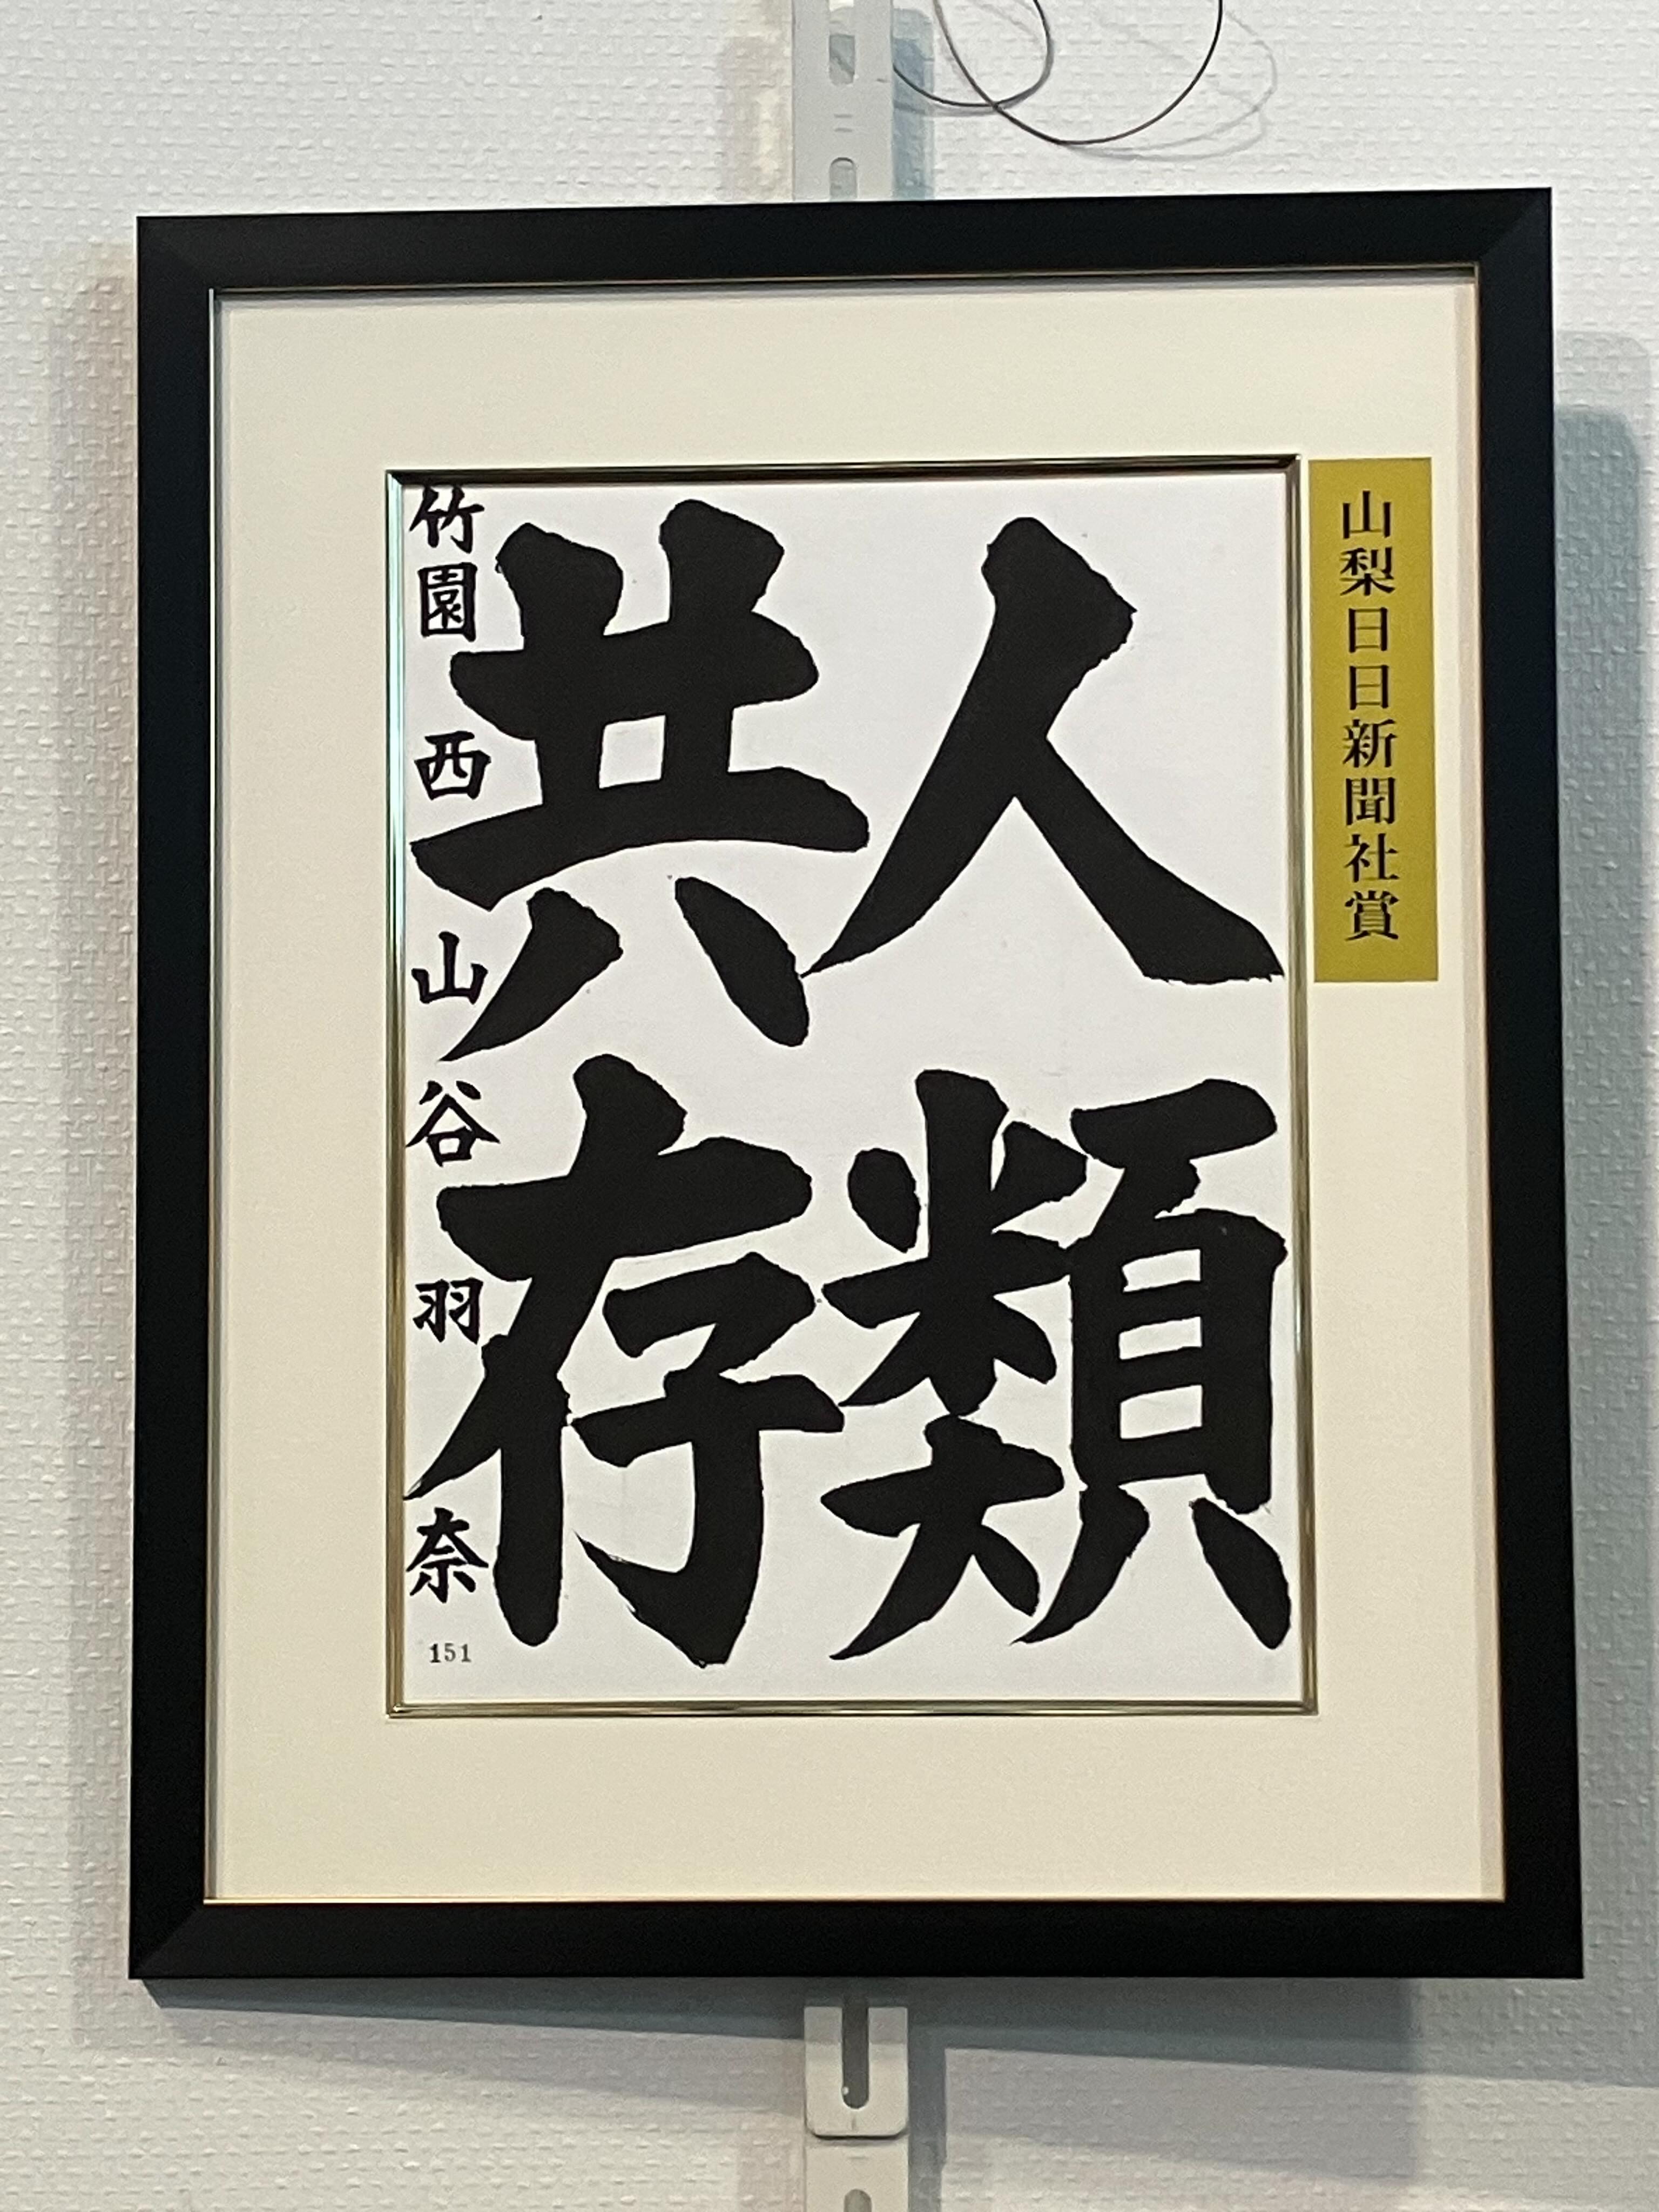 山梨日日新聞社賞
人類
共存
竹園西 山谷羽奈
151